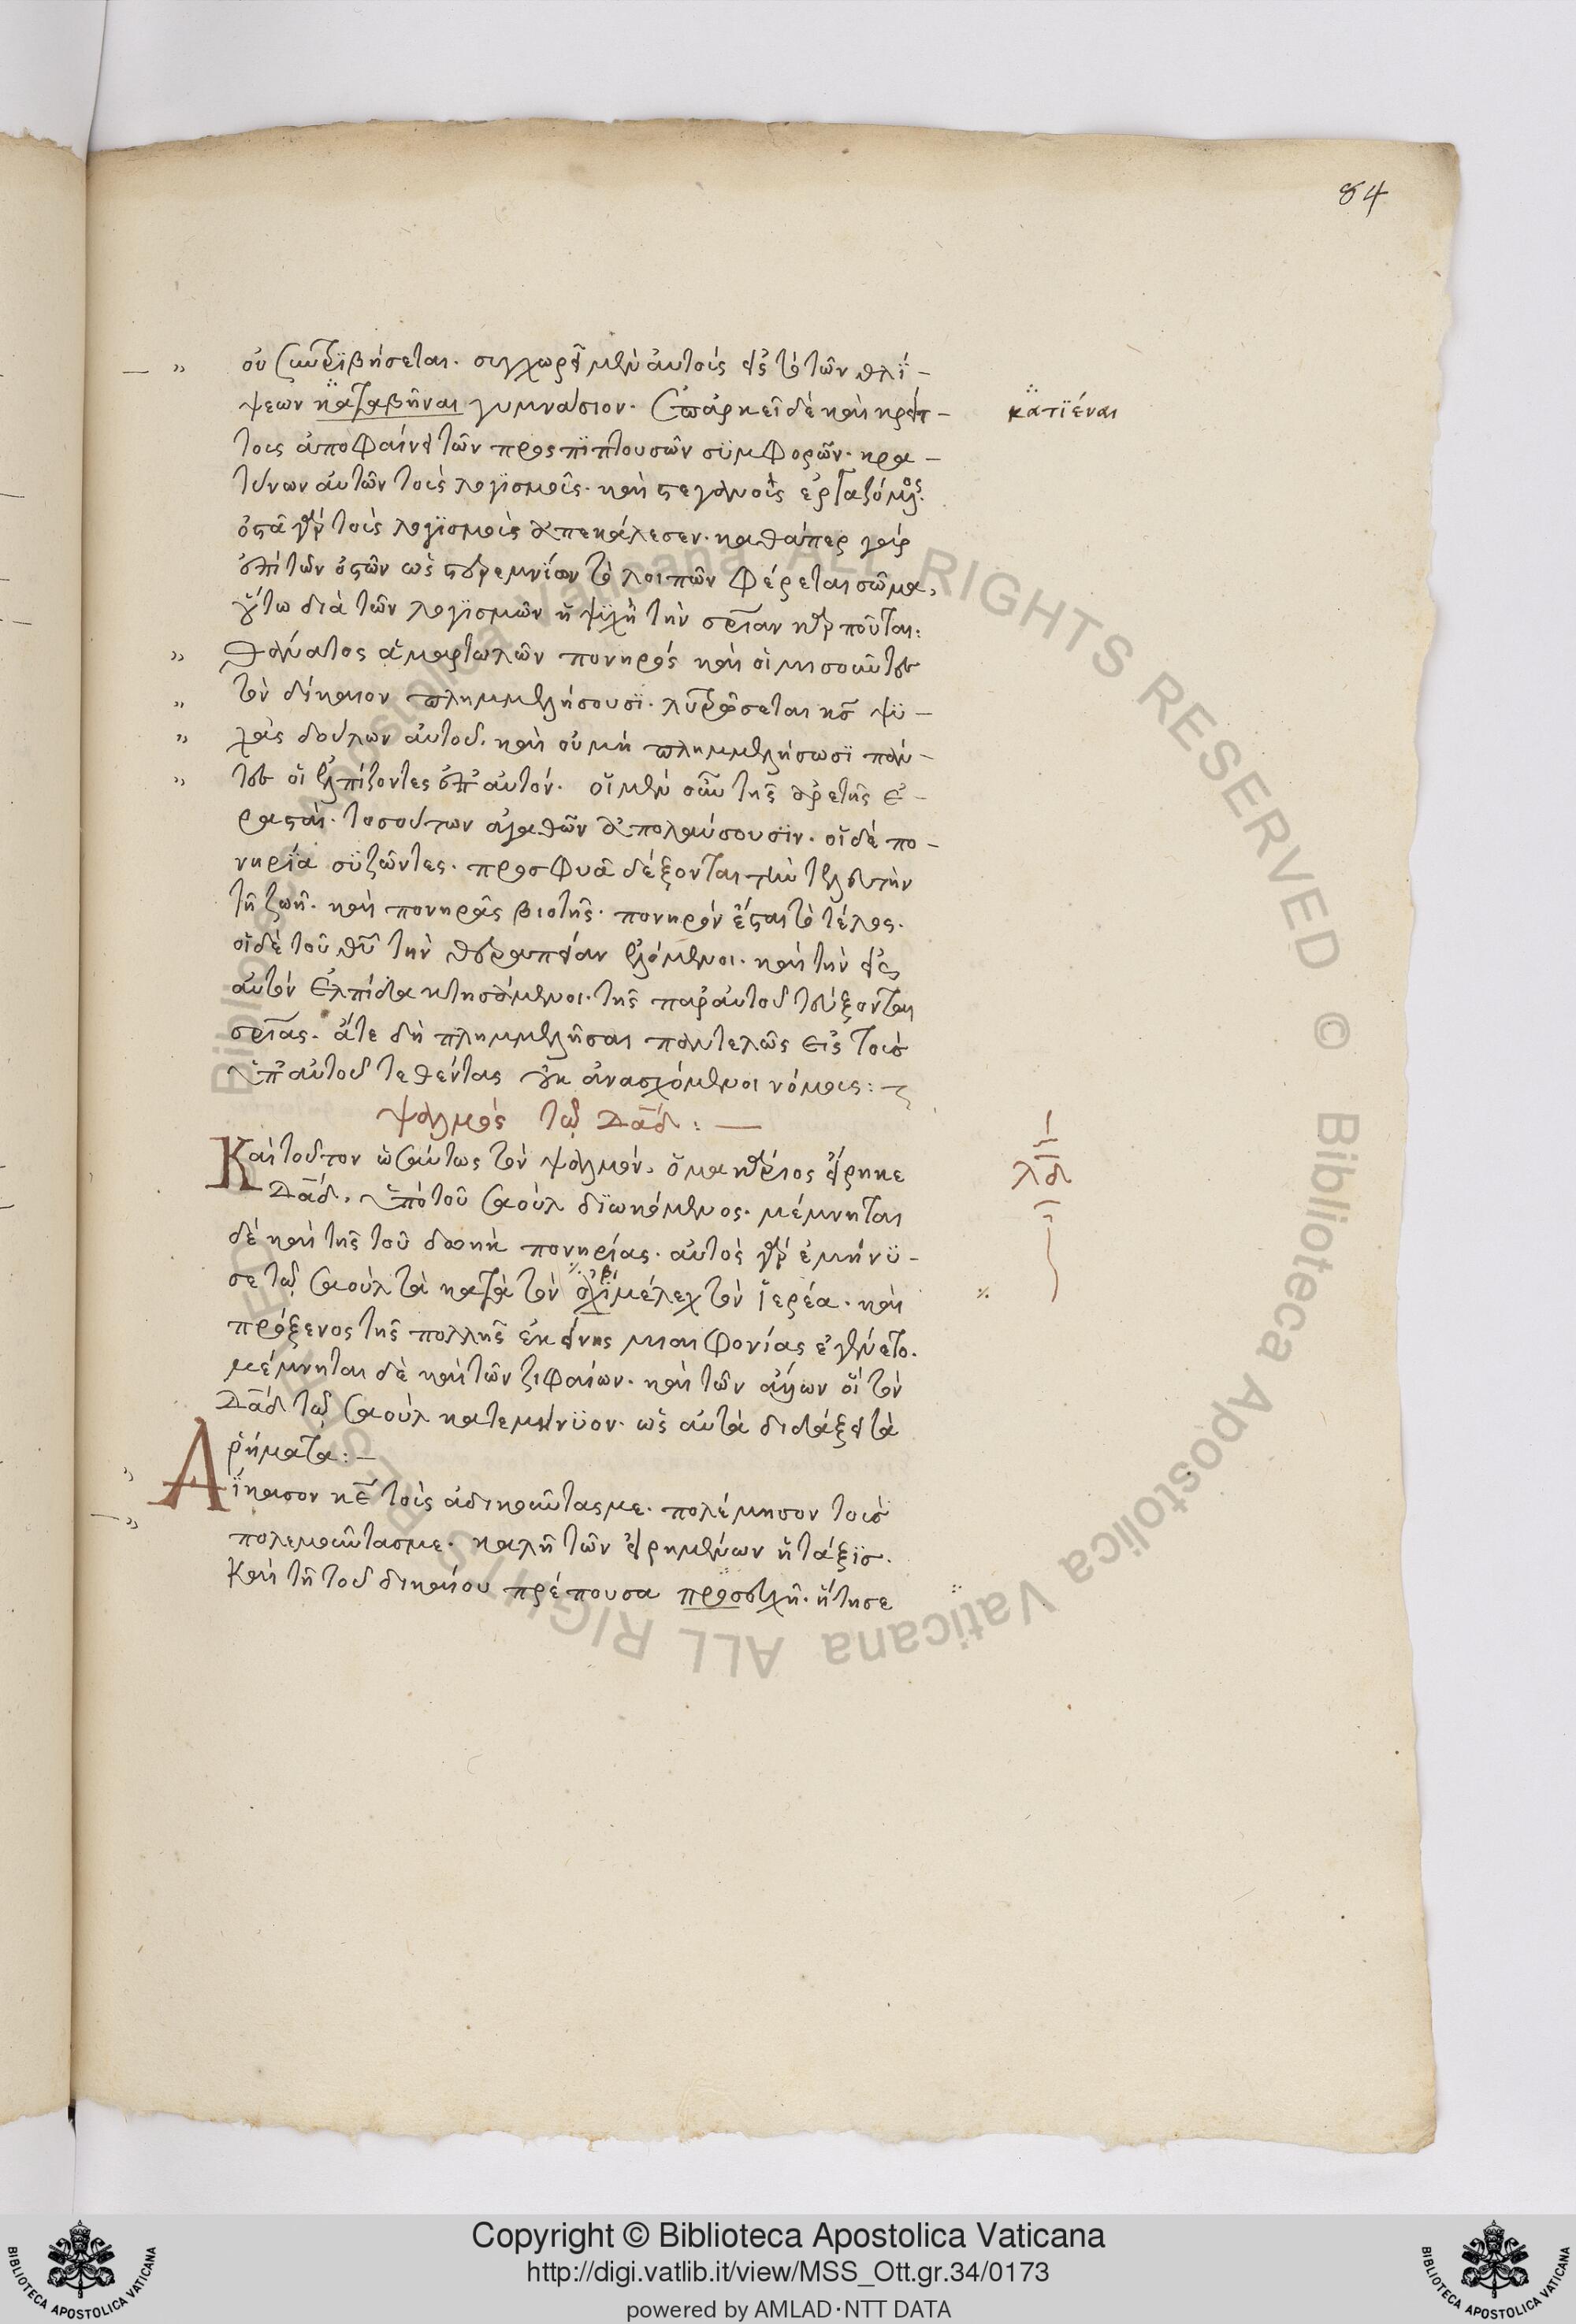 84
οὐ συντριβήσεται. συγχωρεῖ μὲν αὐτοῖς εἰς τὸ τῶν θλί-
ψεων καταβῆναι γυμνάσιον. ἐπαρκεῖ δὲ καὶ κρείτ-
κατϊέναι
τους ἀποφαίνει τῶν προσπϊπτουσῶν συμφορῶν. κρα-
τύνων αὐτῶν τοὺς λογϊσμοὺς. καὶ στεγανοὺς ἐργαζόμενος.
ὀστᾶ γὰρ τοὺς λογϊσμοὺς ἀπεκάλεσεν. καθάπερ γὰρ
ἐπὶ τῶν ὀστῶν ὡς στερεμνίων τὸ λοιπὸν φέρεται σῶμα,
οὕτω διὰ τῶν λογϊσμῶν ἡ ψϋχὴ τὴν σρίαν καρποῦται:
θάνατος ἁμαρτωλῶν πονηρός καὶ οἱ μισοῦντες
τὸν δίκαιον πλημμελήσουσϊ. λυτρώσεται κς ψϋ-
χὰς δούλων αὐτοῦ. καὶ οὐ μὴ πλημμελήσωσϊ πάν-
τες οἱ ἐλπίζοντες ἐπ' αὐτόν. οἱ μὲν οὖν τῆς ἀρετῆς ἐ-
ρασταὶ. τοσούτων ἀγαθῶν ἀπολαύσουσϊν. οἱ δὲ πο-
νηρίᾳ συζῶντες. προσφυᾶ δέξονται τὴν τελευτὴν
τῆ ζωῆ. καὶ πονηρᾶς βιοτῆς. πονηρὸν ἔσται τὸ τέλος.
οἱ δὲ τοῦ θυ τὴν θεραπείαν ἑλόμενοι. καὶ τὴν εἰς
αὐτὸν ἐλπίδα κτησάμενοι. τῆς παρ' αὐτοῦ τεύξονται
σρίας. ἅτε δὴ πλημμελῆσαι παντελῶς εἰς τοὺς
ὑπ' αὐτοῦ τεθέντας οὐκ ἀνασχόμενοι νόμους:
ψαλμὸς τῶ Δαδ: —
λδ
Καὶ τοῦτον ὡσαύτως τὸν ψαλμὸν, ὁ μακάριος εἴρηκε
Δαδ, ὑπὸ τοῦ Σαοὺλ διωκόμενος. μέμνηται
δὲ καὶ τῆς τοῦ δωὴκ πονηρίας. αὐτὸς γὰρ ἐμήνϋ-
σε τῶ Σαοὺλ τὰ κατὰ τὸν ἀχϊμέλεχ τὸν ἱερέα. καὶ
πρόξενος τῆς πολλῆς ἐκείνης μιαιφονίας ἐγένετο.
μέμνηται δὲ καὶ τῶν ζιφαίων. καὶ τῶν ἄλλων οἳ τὸν
Δαδ τῶ Σαοὺλ κατεμήνϋον. ὡς αὐτὰ διδάξει τὰ
ῥήματα: —
Δίκασον κε τοὺς ἀδικοῦντάς με. πολέμησον τοὺς
πολεμοῦντάς με. καλὴ τῶν εἰρημένων ἡ τάξϊς.
καὶ τῆ τοῦ δικαίου πρέπουσα προσευχῆ. ἤτησε
Copyright © Biblioteca Apostolica Vaticana
http://digi.vatlib.it/view/MSS_Ott.gr.34/0173
powered by AMLAD·NTT DATA